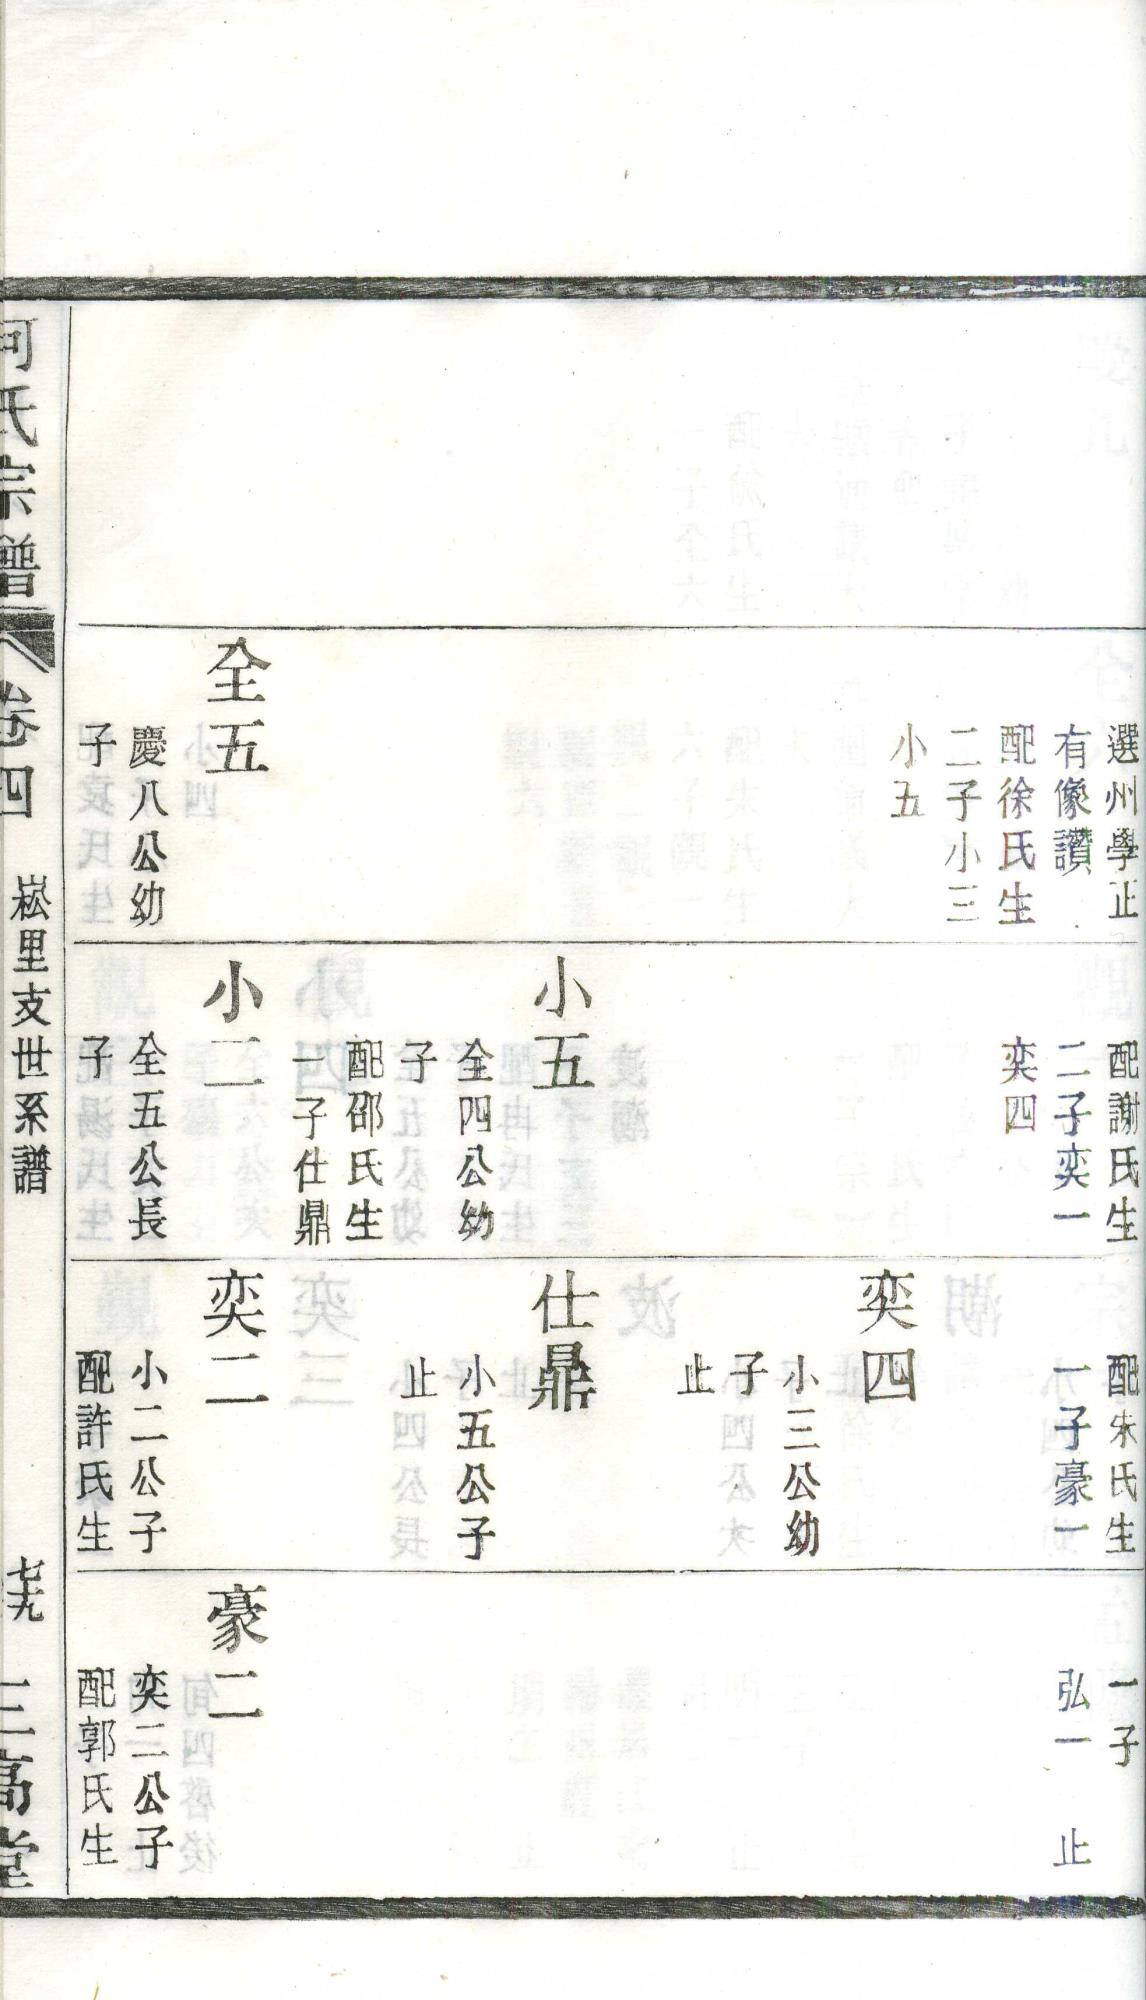 選州學正
有像讚
配徐氏生
二子小三
小五
全五
慶八公幼
子
配謝氏生
二子奕一
奕四
小五
全四公幼
子
配邵氏生
一子仕鼎
小二
全五公長
子
配朱氏生
一子豪一
奕四
小三公幼
子
止
仕鼎
小五公子
止
奕二
小二公子
配許氏生
一子
弘一 止
豪二
奕二公子
配郭氏生
何氏宗譜
卷四
崧里支世系譜
七十九
三高堂